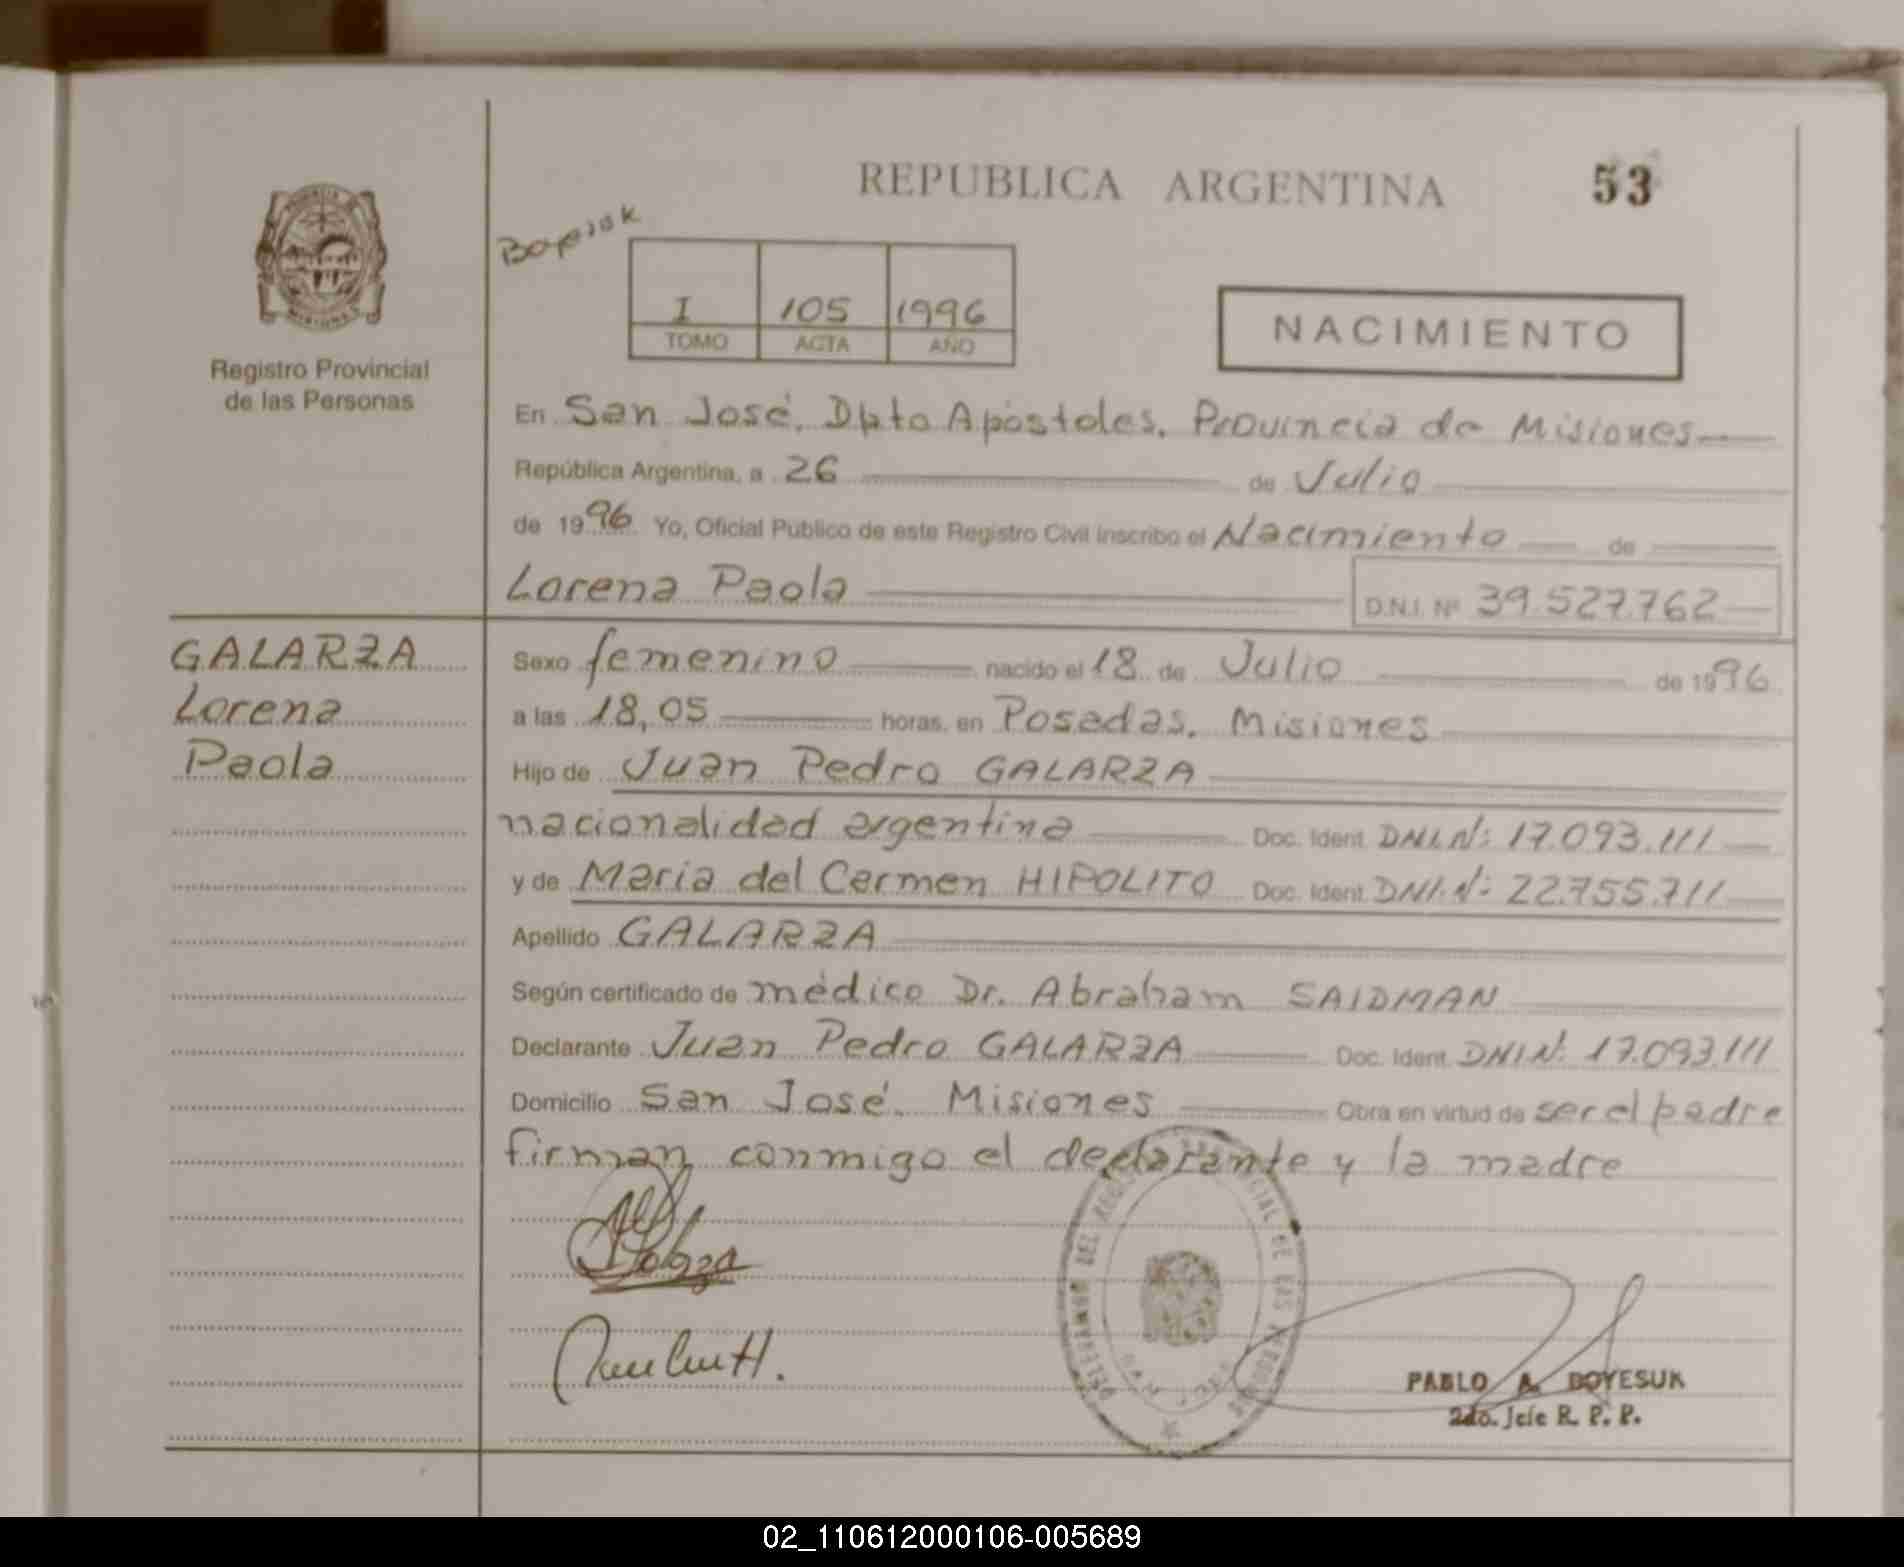 REPUBLICA ARGENTINA
53
PROVINCIA DE
MISIONES
Registro Provincial
de las Personas
Boyesuk
I 105 1996
TOMO ACTA AÑO
NACIMIENTO
En San José. Dpto Apóstoles. Provincia de Misiones
República Argentina, a 26 de Julio
de 1996 Yo, Oficial Público de este Registro Civil inscribo el Nacimiento de
Lorena Paola D.N.I. Nº 39.527.762
GALARZA
Lorena
Paola
Sexo femenino nacido el 18 de Julio de 1996
a las 18,05 horas, en Posadas. Misiones
Hijo de Juan Pedro GALARZA
nacionalidad argentina Doc. Ident. DNI.Nº: 17.093.111
y de Maria del Carmen HIPOLITO Doc. Ident. DNI.Nº: 22.755.711
Apellido GALARZA
Según certificado de médico Dr. Abraham SAIDMAN
Declarante Juan Pedro GALARZA Doc. Ident. DNI Nº: 17.093.111
Domicilio San José. Misiones Obra en virtud de ser el padre
firman conmigo el declarante y la madre
DELEGACION DEL REGISTRO PROVINCIAL DE LAS PERSONAS
SAN JOSE
PABLO A. BOYESUK
2do. Jefe R. P. P.
02_110612000106-005689